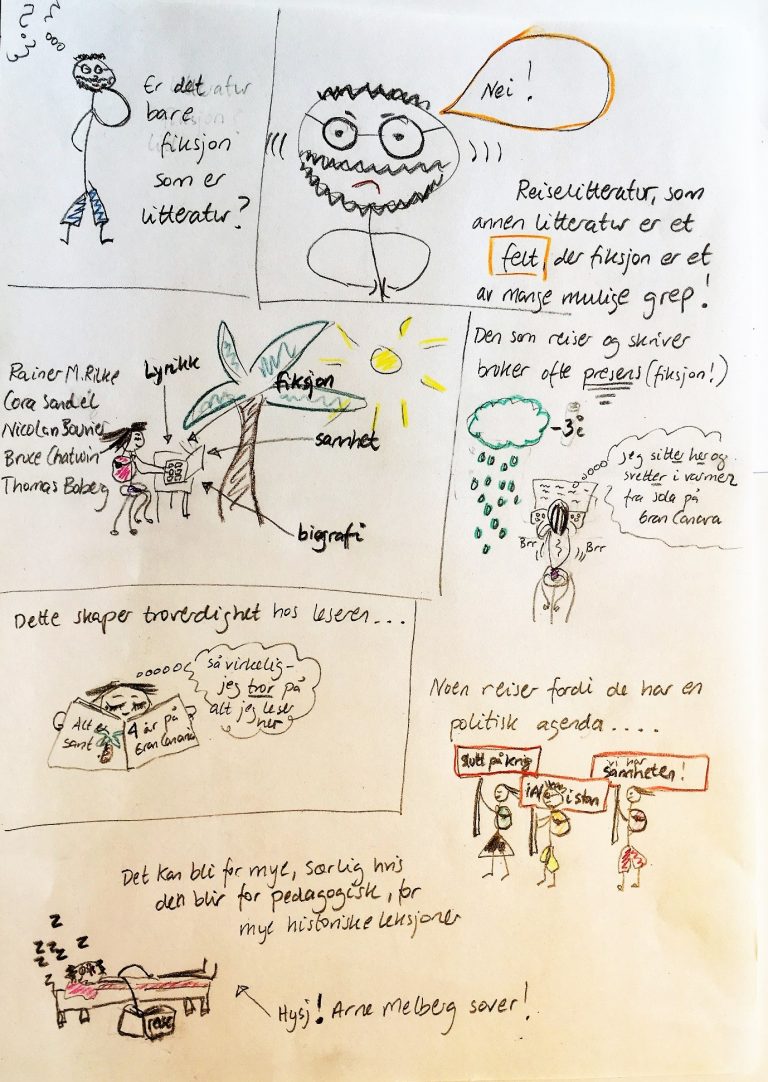 Er det
bare
fiksjon
som er
litteratur?
Nei!
Reiselitteratur, som
annen litteratur er et
felt, der fiksjon er et
av mange mulige grep!
Rainer M. Rilke
Cora Sandel
Nicolan Bouvier
Bruce Chatwin
Thomas Boberg
Lyrikk
fiksjon
sannhet
biografi
Den som reiser og skriver
bruker ofte presens (fiksjon!)
-3°C
jeg sitter her og
svetter i varmen
fra sola på
Gran Canara
Brr
Brr
Dette skaper troverdighet hos leseren...
så virkelig-
jeg tror på
alt jeg leser
her
Alt er
sant
4 år på
Gran Canaria
Noen reiser fordi de har en
politisk agenda....
slutt på krig
i stan
vi har
sannheten!
Det kan bli for mye, særlig hvis
den blir for pedagogisk, for
mye historiske leksjoner
z
z z
zz z
z
z
reise
Hysj! Arne Melberg sover!